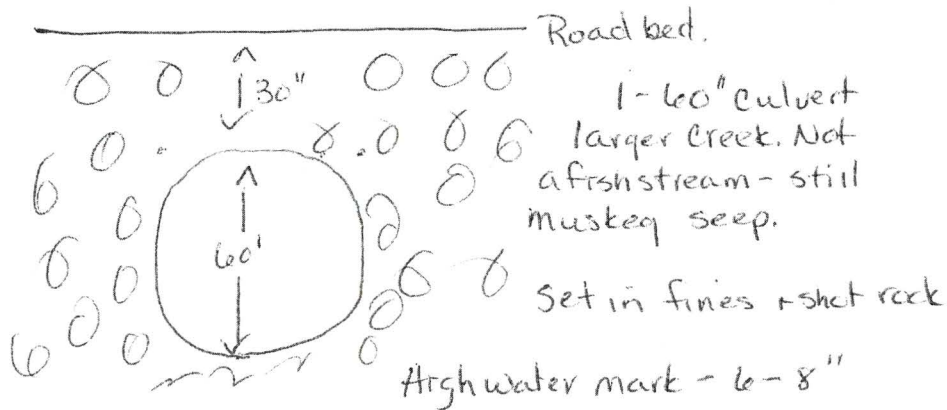 Road bed.
30"
1-60" culvert
larger Creek. Not
a fish stream - still
muskeg seep.
60'
Set in fines + shot rock
High water mark - 6-8"